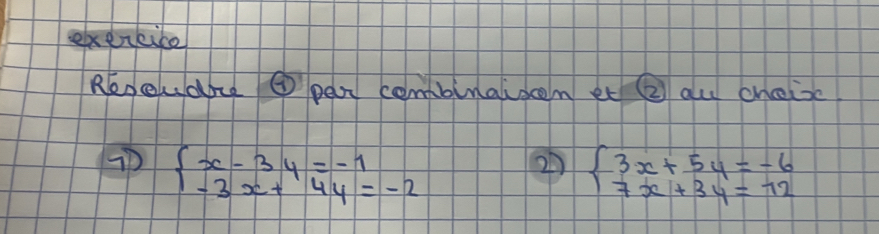 exercice
Résoudre ① par combinaison et ② au choix.
1) { x - 3y = -1
-3x + 4y = -2
2) { 3x + 5y = -6
7x + 3y = 12